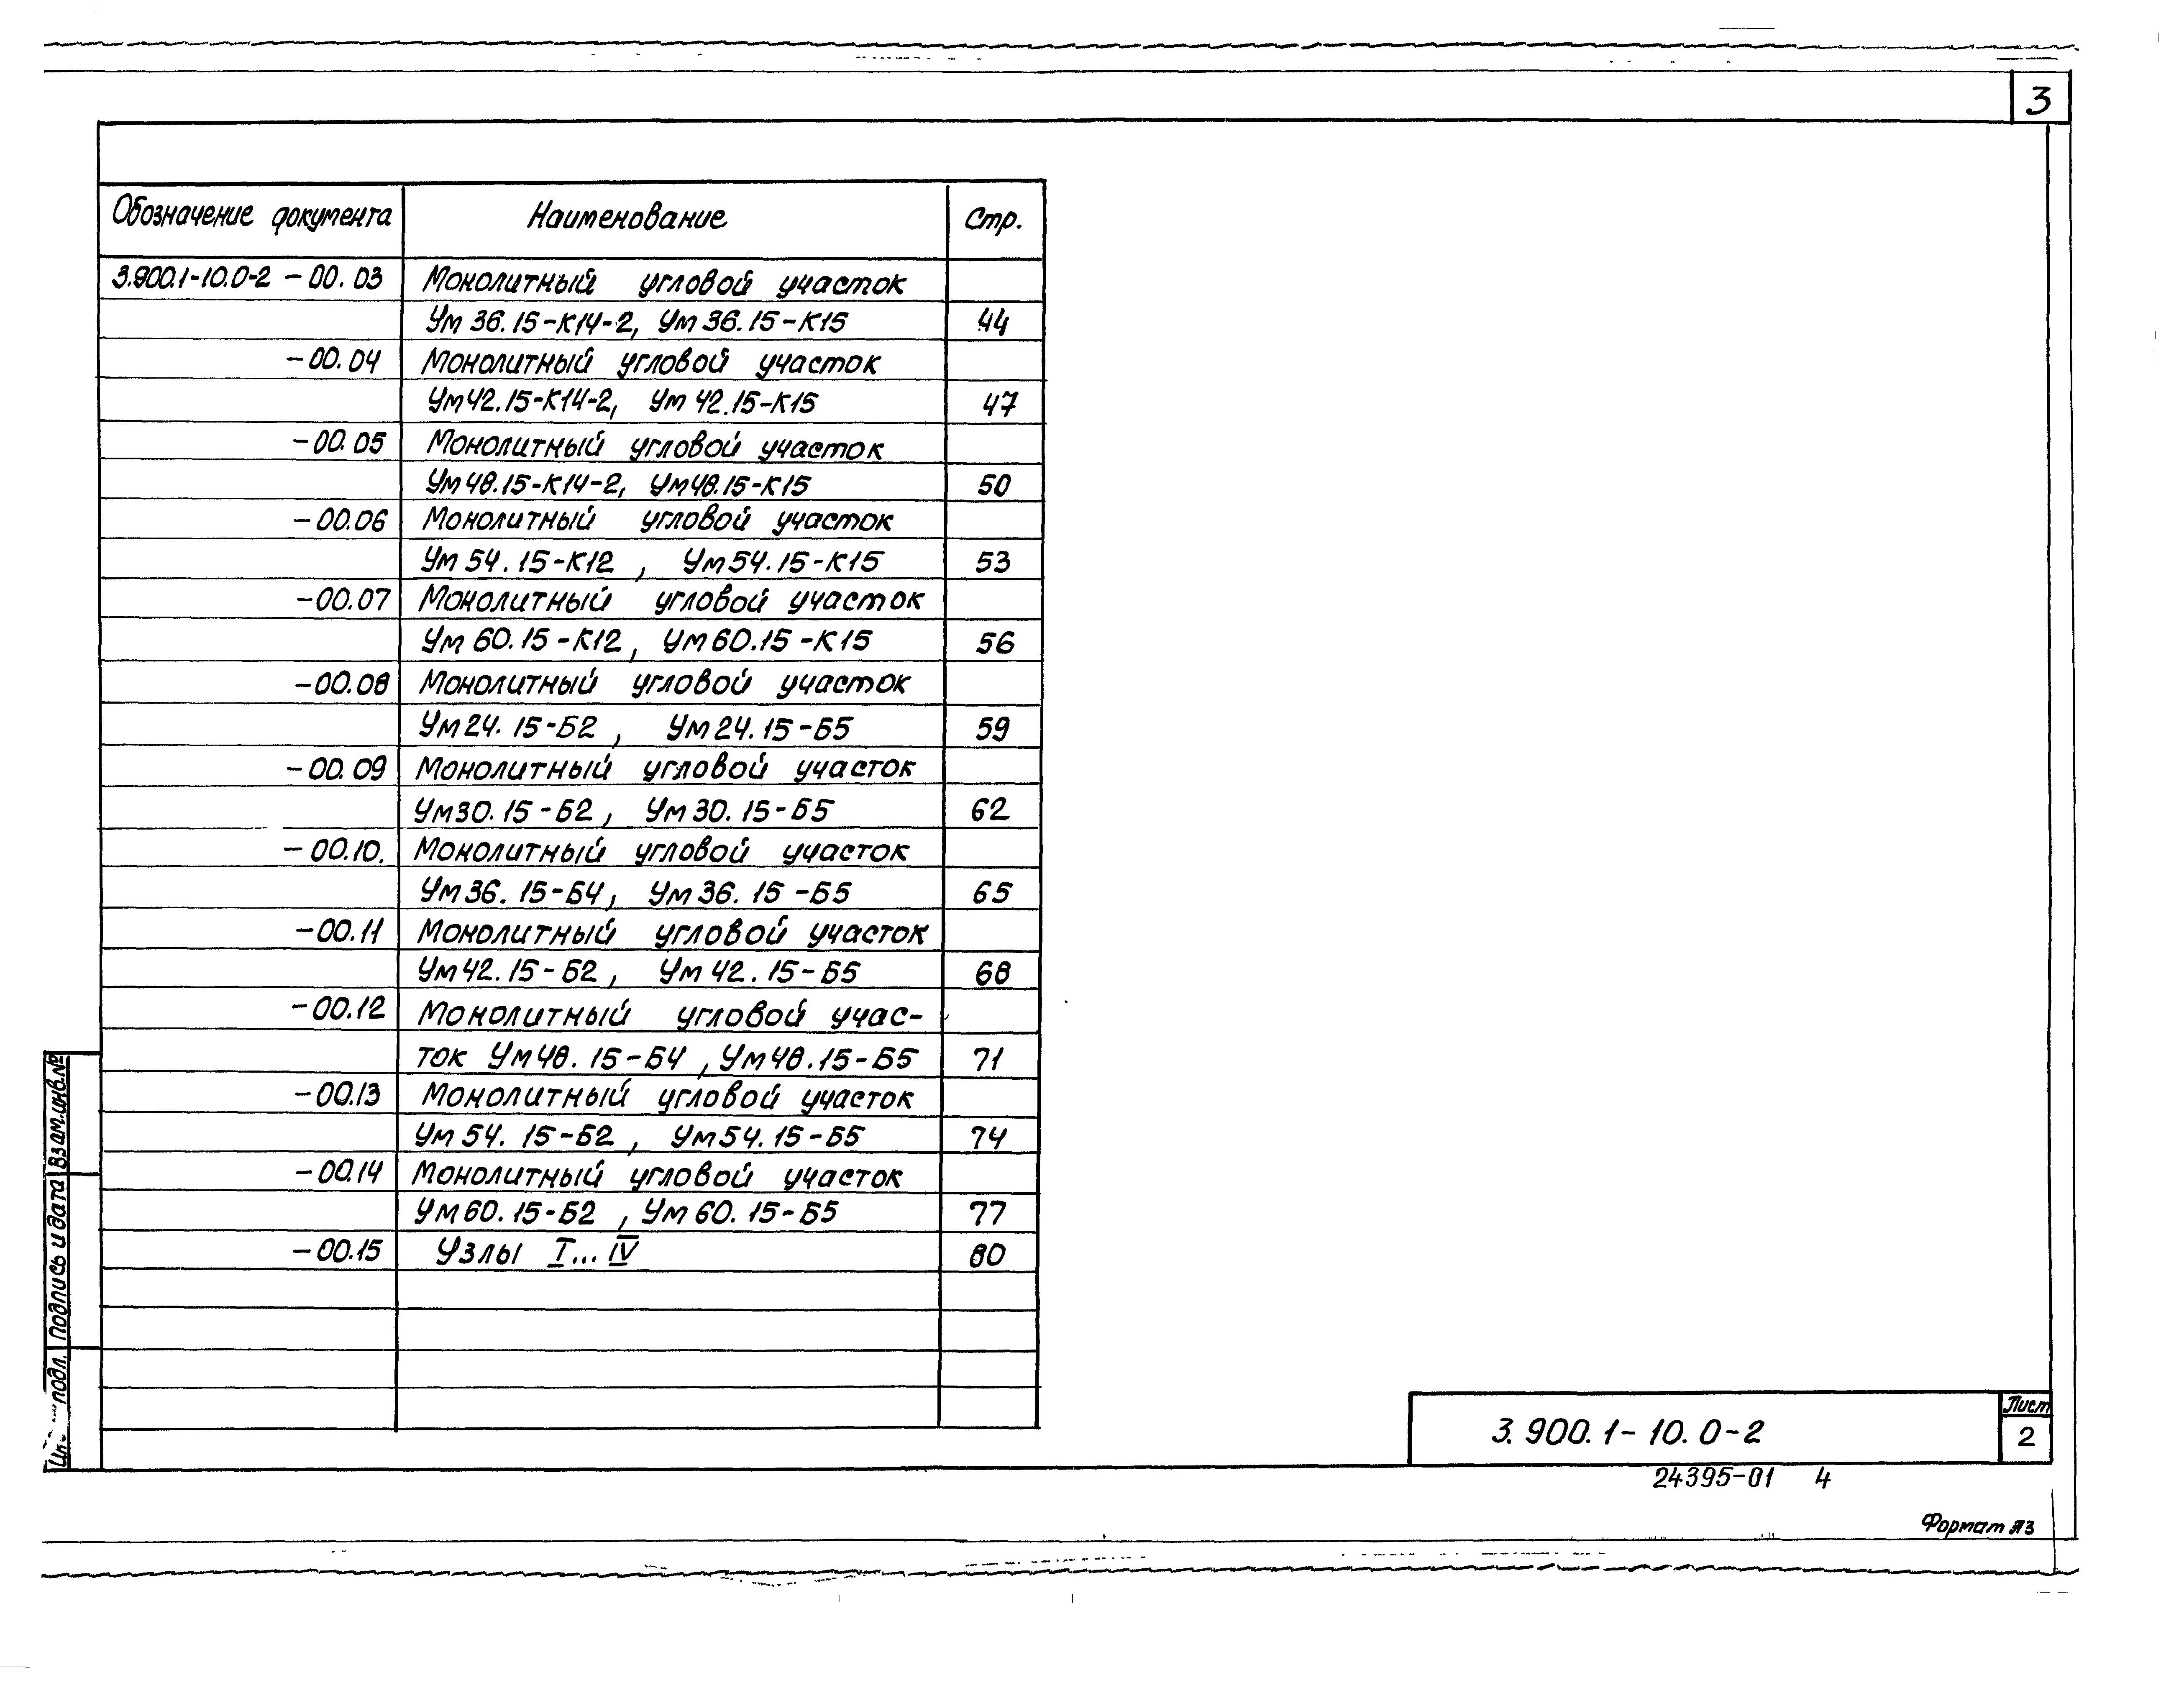 3
Обозначение документа Наименование Стр.
3.900.1-10.0-2 -00.03 Монолитный угловой участок
Ум 36.15-К14-2, Ум 36.15-К15 44
-00.04 Монолитный угловой участок
Ум42.15-К14-2, Ум 42.15-К15 47
-00.05 Монолитный угловой участок
Ум48.15-К14-2, Ум48.15-К15 50
-00.06 Монолитный угловой участок
Ум 54.15-К12, Ум54.15-К15 53
-00.07 Монолитный угловой участок
Ум 60.15-К12, Ум60.15-К15 56
-00.08 Монолитный угловой участок
Ум24.15-Б2, Ум24.15-Б5 59
-00.09 Монолитный угловой участок
Ум30.15-Б2, Ум30.15-Б5 62
-00.10. Монолитный угловой участок
Ум36.15-Б4, Ум36.15-Б5 65
-00.11 Монолитный угловой участок
Ум42.15-Б2, Ум42.15-Б5 68
-00.12 Монолитный угловой учас-
ток Ум48.15-Б4, Ум48.15-Б5 71
-00.13 Монолитный угловой участок
Ум54.15-Б2, Ум54.15-Б5 74
-00.14 Монолитный угловой участок
Ум60.15-Б2, Ум60.15-Б5 77
-00.15 Узлы I...IV 80
Взам.инв.№
Подпись и дата
подл.
3.900.1-10.0-2
Лист
2
24395-01 4
Формат А3